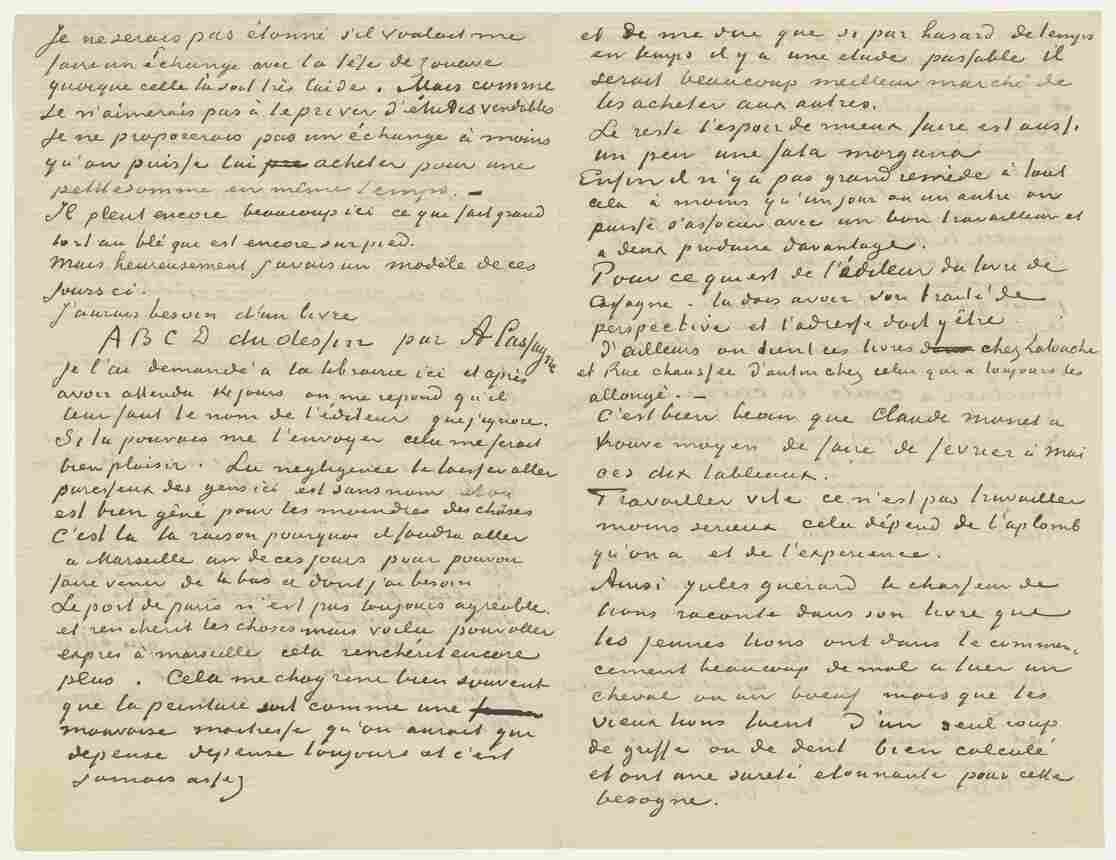 Je ne serais pas étonné s'il voulait me
faire un Échange avec la tête de zouave
quoique celle là soit très laide. Mais comme
je n'aimerais pas à le priver d'études vendables
je ne proposerais pas un échange à moins
qu'on puisse lui acheter pour une
petite somme en même temps. —
Il pleut encore beaucoup ici ce que fait grand
tort au blé que est encore sur pied.
Mais heureusement j'avais un modèle de ces
jours ci.
J'aurais besoin d'un livre
A B C D du dessin par A Cassagne
je l'ai demandé à la librairie ici et après
avoir attendu 14 jours on me repond qu'il
leur faut le nom de l'éditeur que j'ignore.
Si tu pouvais me l'envoyer cela me ferait
bien plaisir. La negligence le laisser aller
paresseux des gens ici est sans nom et on
est bien gêné pour les moindres des choses
C'est là la raison pourquoi il faudra aller
a Marseille un de ces jours pour pouvoir
faire venir de la bas ce dont j'ai besoin
Le port de paris n'est pas toujours agreable
et rencherit les choses mais voila pour aller
exprès à marseille cela rencherit encore
plus. Cela me chagrine bien souvent
que la peinture soit comme une
mauvaise maitresse qu'on aurait qui
depense depense toujours et c'est
jamais assez
et de me dire que si par hasard de temps
en temps il y a une etude passable il
serait beaucoup meilleur marché de
les acheter aux autres.
Le reste l'espoir de mieux faire est aussi
un peu une fata morgana
Enfin il n'y a pas grand remède à tout
cela à moins qu'un jour ou un autre on
puisse s'associer avec un bon travailleur et
a deux produire davantage.
Pour ce qui est de l'éditeur du livre de
Cassagne. tu dois avoir son traité de
perspective et l'adresse doit y être
D'ailleurs on tient ces livres chez Latouche
et Rue chaussee d'antin chez celui qui a toujours les
allongé. —
C'est bien beau que Claude monet a
trouvé moyen de faire de fevrier à mai
ces dix tableaux.
Travailler vite ce n'est pas travailler
moins serieux cela dépend de l'aplomb
qu'on a et de l'experience.
Ainsi yules guerard le chasseur de
lions raconte dans son livre que
les jeunes lions ont dans le commen,
cement beaucoup de mal a tuer un
cheval ou un boeuf mais que les
vieux lions tuent D'un seul coup
de griffe ou de dent bien calculé
et ont une sureté etonnante pour cette
besogne.